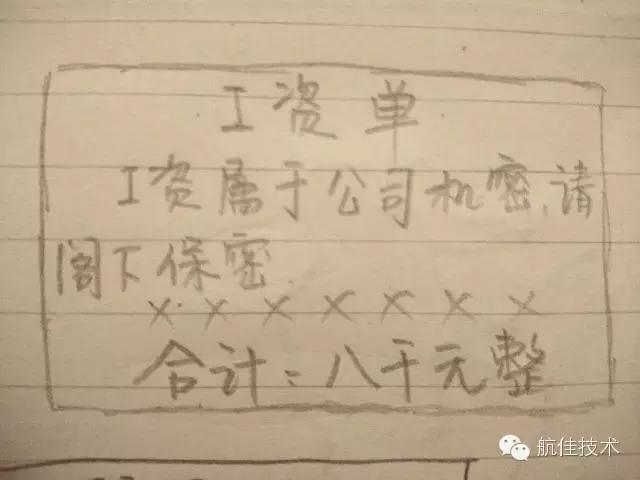 工资单
工资属于公司机密、请
阁下保密
×××××××
合计：八千元整
航佳技术